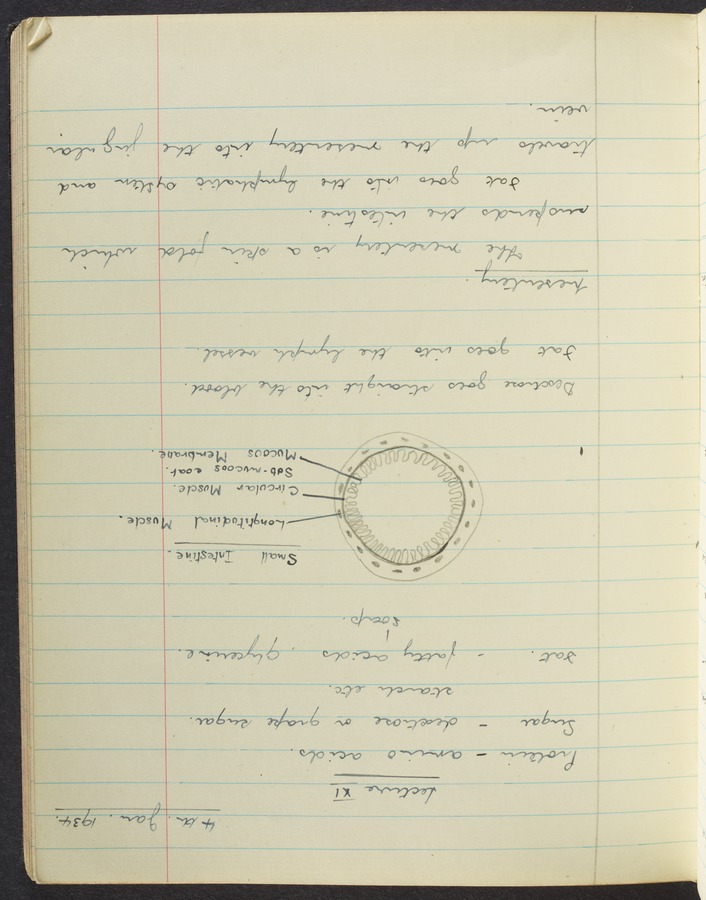 4th Jan. 1934.
Lecture XI
Protein - amino acids.
Sugar - dextrose or grape sugar.
starch etc.
Fat. - fatty acids, glycerine.
soap.
Small Intestine.
Longtitudinal Muscle.
Circular Muscle.
Sub-mucous coat.
Mucous Membrane.
Dextrose goes straight into the blood.
Fat goes into the lymph vessel.
Mesentery.
The mesentery is a skin fold which
suspends the intestine.
Fat goes into the lymphatic system and
travels up the mesentery into the jugular
vein.